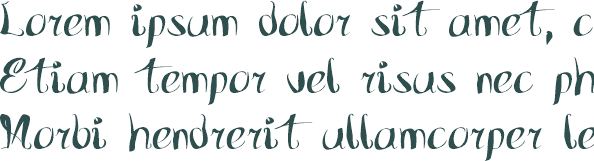 Lorem ipsum dolor sit amet, c
Etiam tempor vel risus nec ph
Morbi hendrerit ullamcorper le